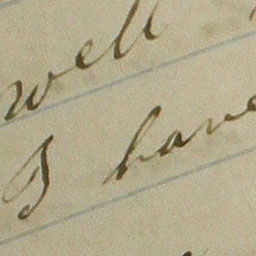 well
I have